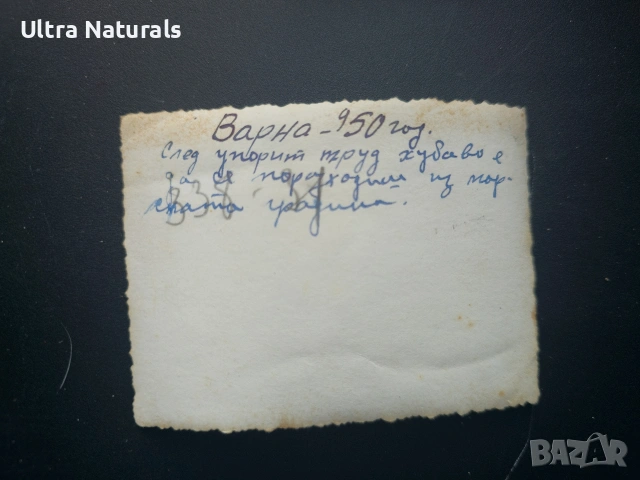 Ultra Naturals
Варна - 950 год.
След упорит труд хубаво е
да се поразходиш из мор-
ската градина.
338
BAZAR